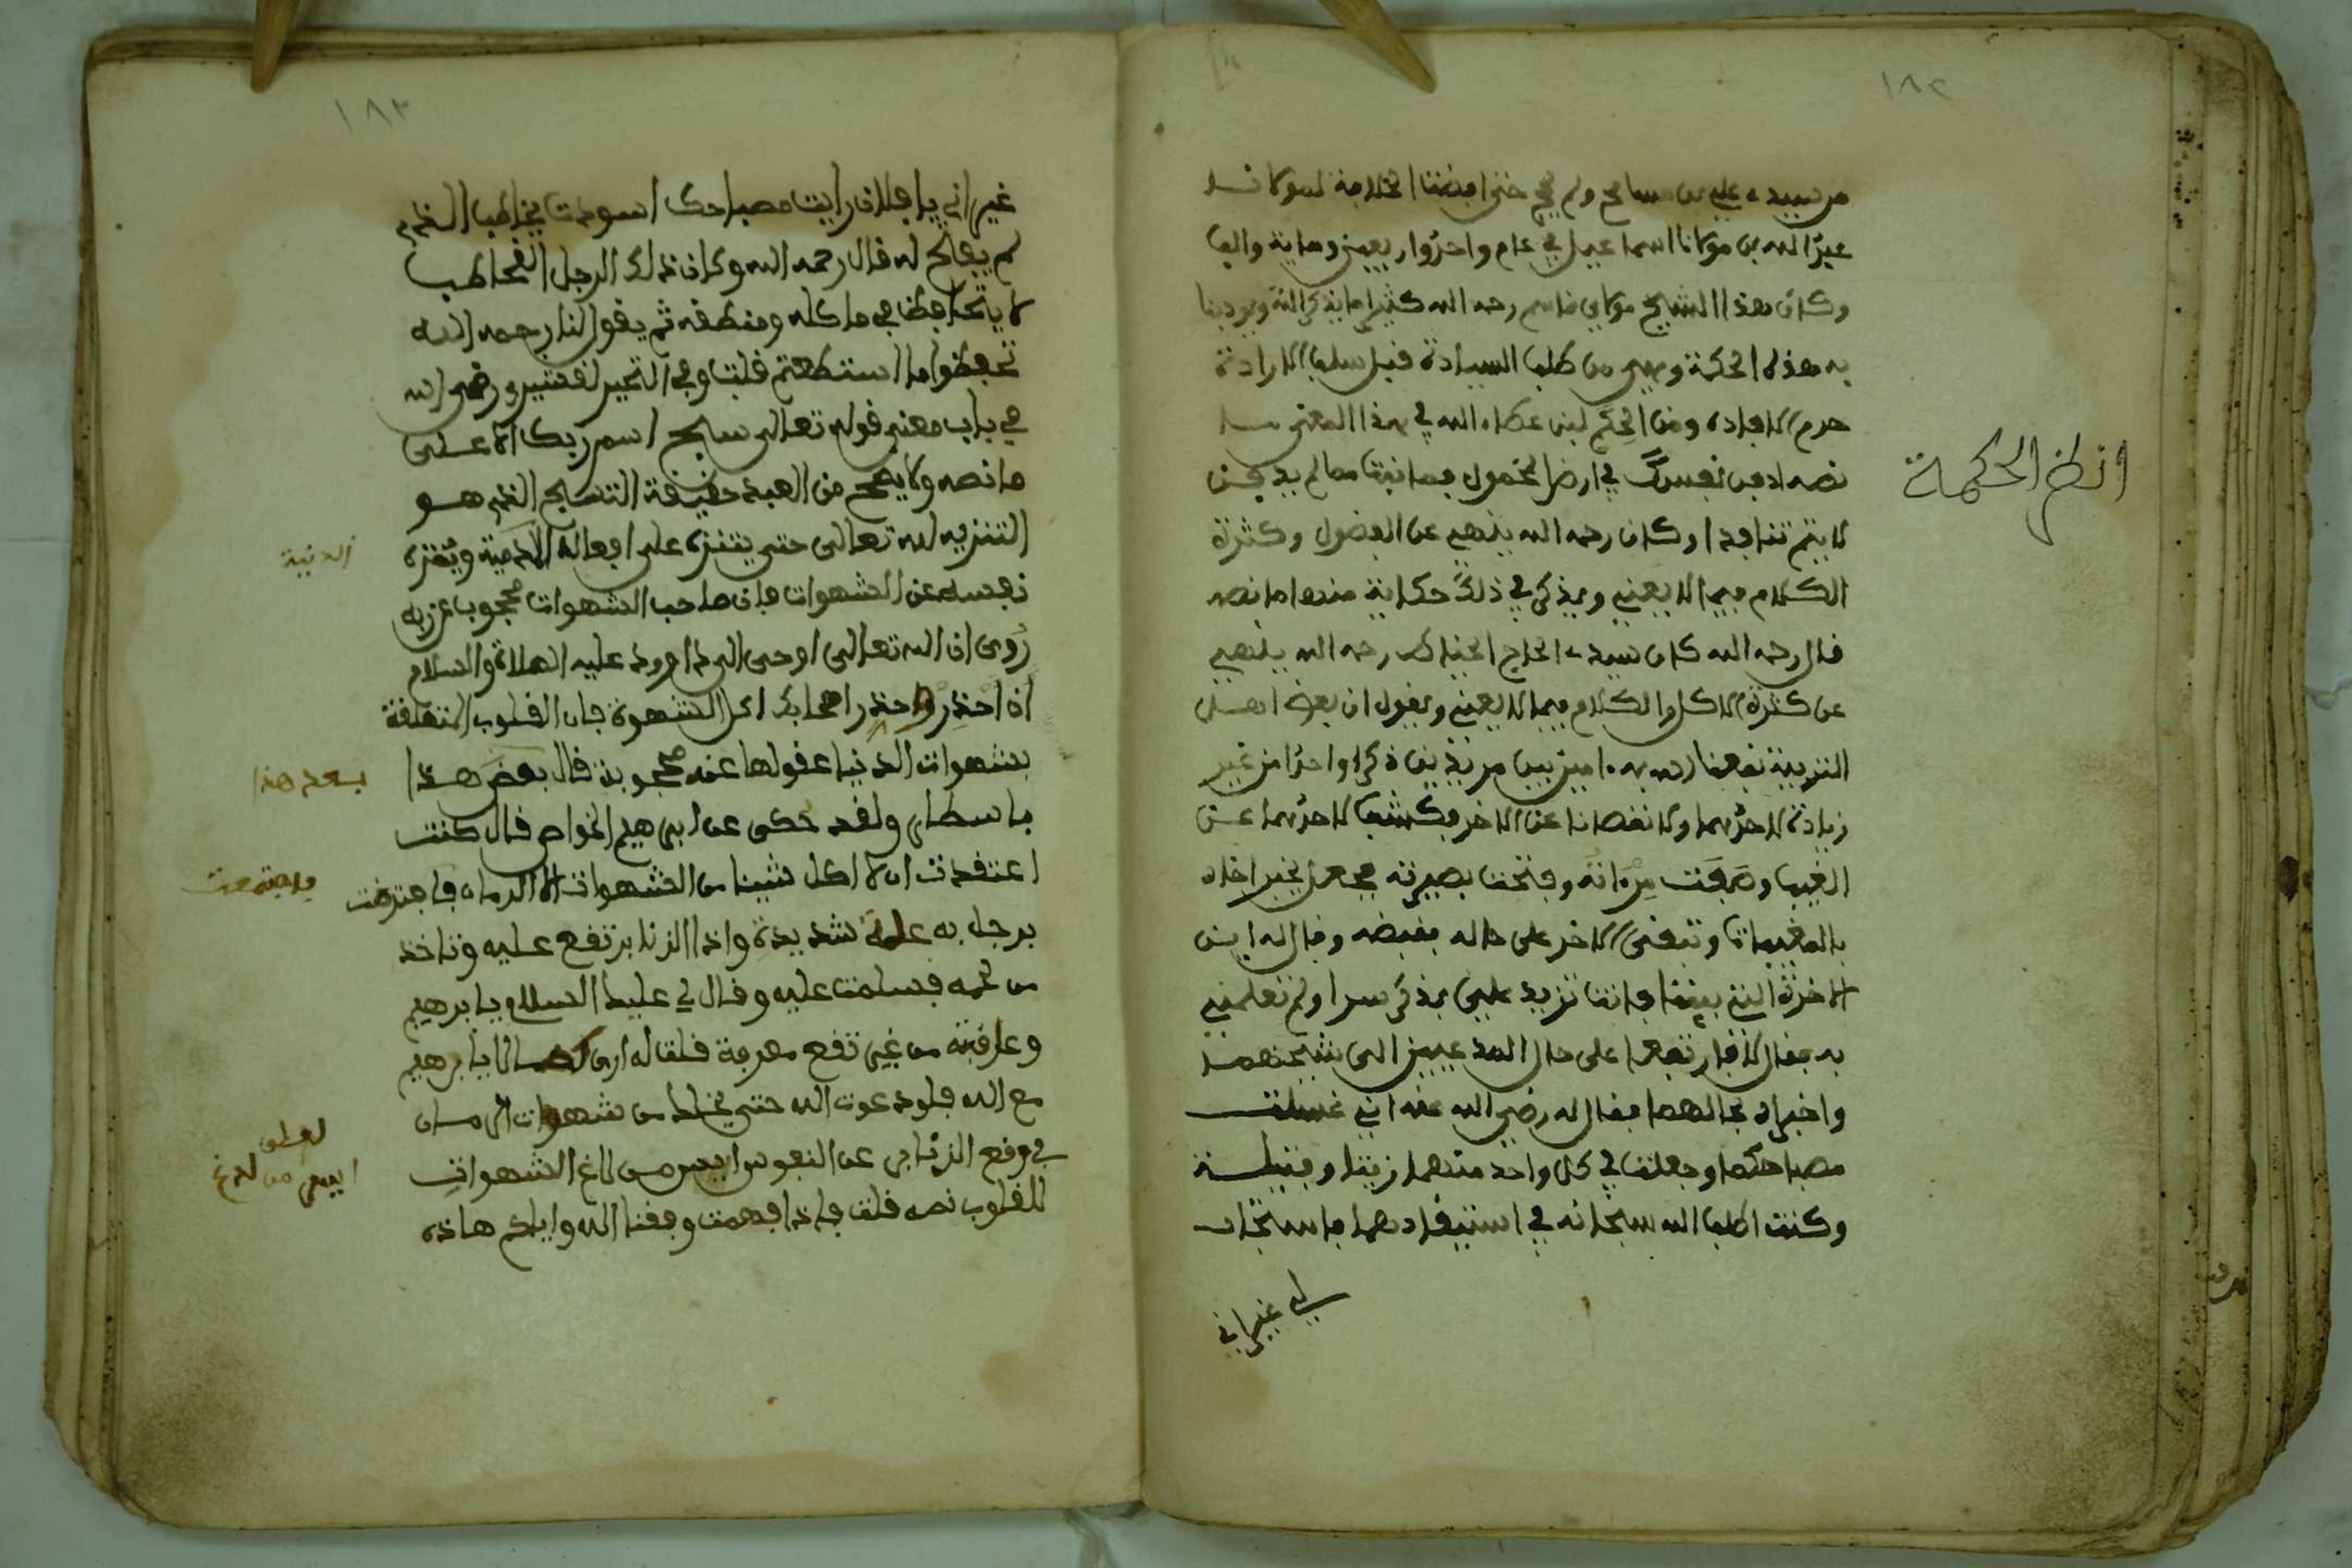 ١٨٢
من سيدي علي بن مسامح ولم يحج حتى امتنعنا الخلافة لمولانا
عبد الله بن مولانا اسماعيل في عام واحد واربعين ومائة والف
وكان هذا الشيخ مولاي قاسم رحمه الله كثيرا ما يذكر لنا ويوصينا
به هذه الحكمة وهي من طلب السيادة قبل سلب الارادة
حرم الافادة ومن الحكم لابن عطاء الله في هذا المعنى ما
نصه ادفن نفسك في ارض الخمول فما نبت مما لم يدفن
لا يتم نتاجه وكان رحمه الله ينهى عن الفضول وكثرة
الكلام فيما لا يعني ويذكر في ذلك حكاية منها ما نصه
قال رحمه الله كان سيدي الحاج الخياط رحمه الله ينهى
عن كثرة الاكل والكلام فيما لا يعني ويقول ان بعض اهل
التربية نفعنا الله به امر بين مريدين ذكرا واحدا من غير
زيادة لاحدهما ولا نقصانا عن الاخر فكشف لاحدهما عن
الغيب وصقت مرءاته وفتحت بصيرته فجعل يخبر اخاه
بالمغيبات وبقى الاخر على حاله بقبضه وقال له اين
الاخوة التي بيننا فانت تزيد علي بذكر سرا ولم تعلمني
به فقال لا فارتفعا على حال المدعيين الى شيخهما
واخبراه بحالهما فقال له رضي الله عنه اني غسلت
مصباحكما وجعلت في كل واحد منهما زيتا وفتيلة
وكنت اطلب الله سبحانه في استيقادهما فاستجاب
لي غير اني
انظر الحكمة
١٨٣
غير اني يا فلان رايت مصباحك اسودت يخاطب الذي
لم يفتح له قال رحمه الله وكان ذلك الرجل المخاطب
لا يتحافظ في ماكله ومنطقه ثم يقول لنا رحمه الله
تحفظوا ما استطعتم قلت وفي التحبير للقشيري رضي الله
في باب معنى قوله تعالى سبح اسم ربك الاعلى
ما نصه ولا يصح من العبد حقيقة التسبيح الذي هو
التنزيه لله تعالى حتى يتنزه على افعاله الذمية وينزه
نفسه عن الشهوات فان صاحب الشهوات محجوب عن ربه
روى ان الله تعالى اوحى الى داوود عليه الصلاة والسلام
ان احذر واحذر اصحابك اكل الشهوة فان القلوب المتعلقة
بشهوات الدنيا عقولها عني محجوبة قال بعض هذا
باسطار ولقد حكى عن ابراهيم الخواص قال كنت
اعتقدت ان لا اكل شيئا من الشهوات الا الرمان فاجترت
برجل به علة شديدة واذا الزنابر تقع عليه وتاخذ
من لحمه فسلمت عليه وقال لي عليك السلام يا ابرهيم
وعارفته من غير تقع معرفة فقلت له ارى لك حالا يا ابرهيم
مع الله فلو دعوت الله حتى يخلصك من شهوات الرمان
في وقع الزنابر عن النفوس ايسر من لدغ الشهوات
للقلوب نصه قلت فاذا فهمت وفقنا الله واياكم هاذه
الدنية
بعد هذا
فاجتمعت